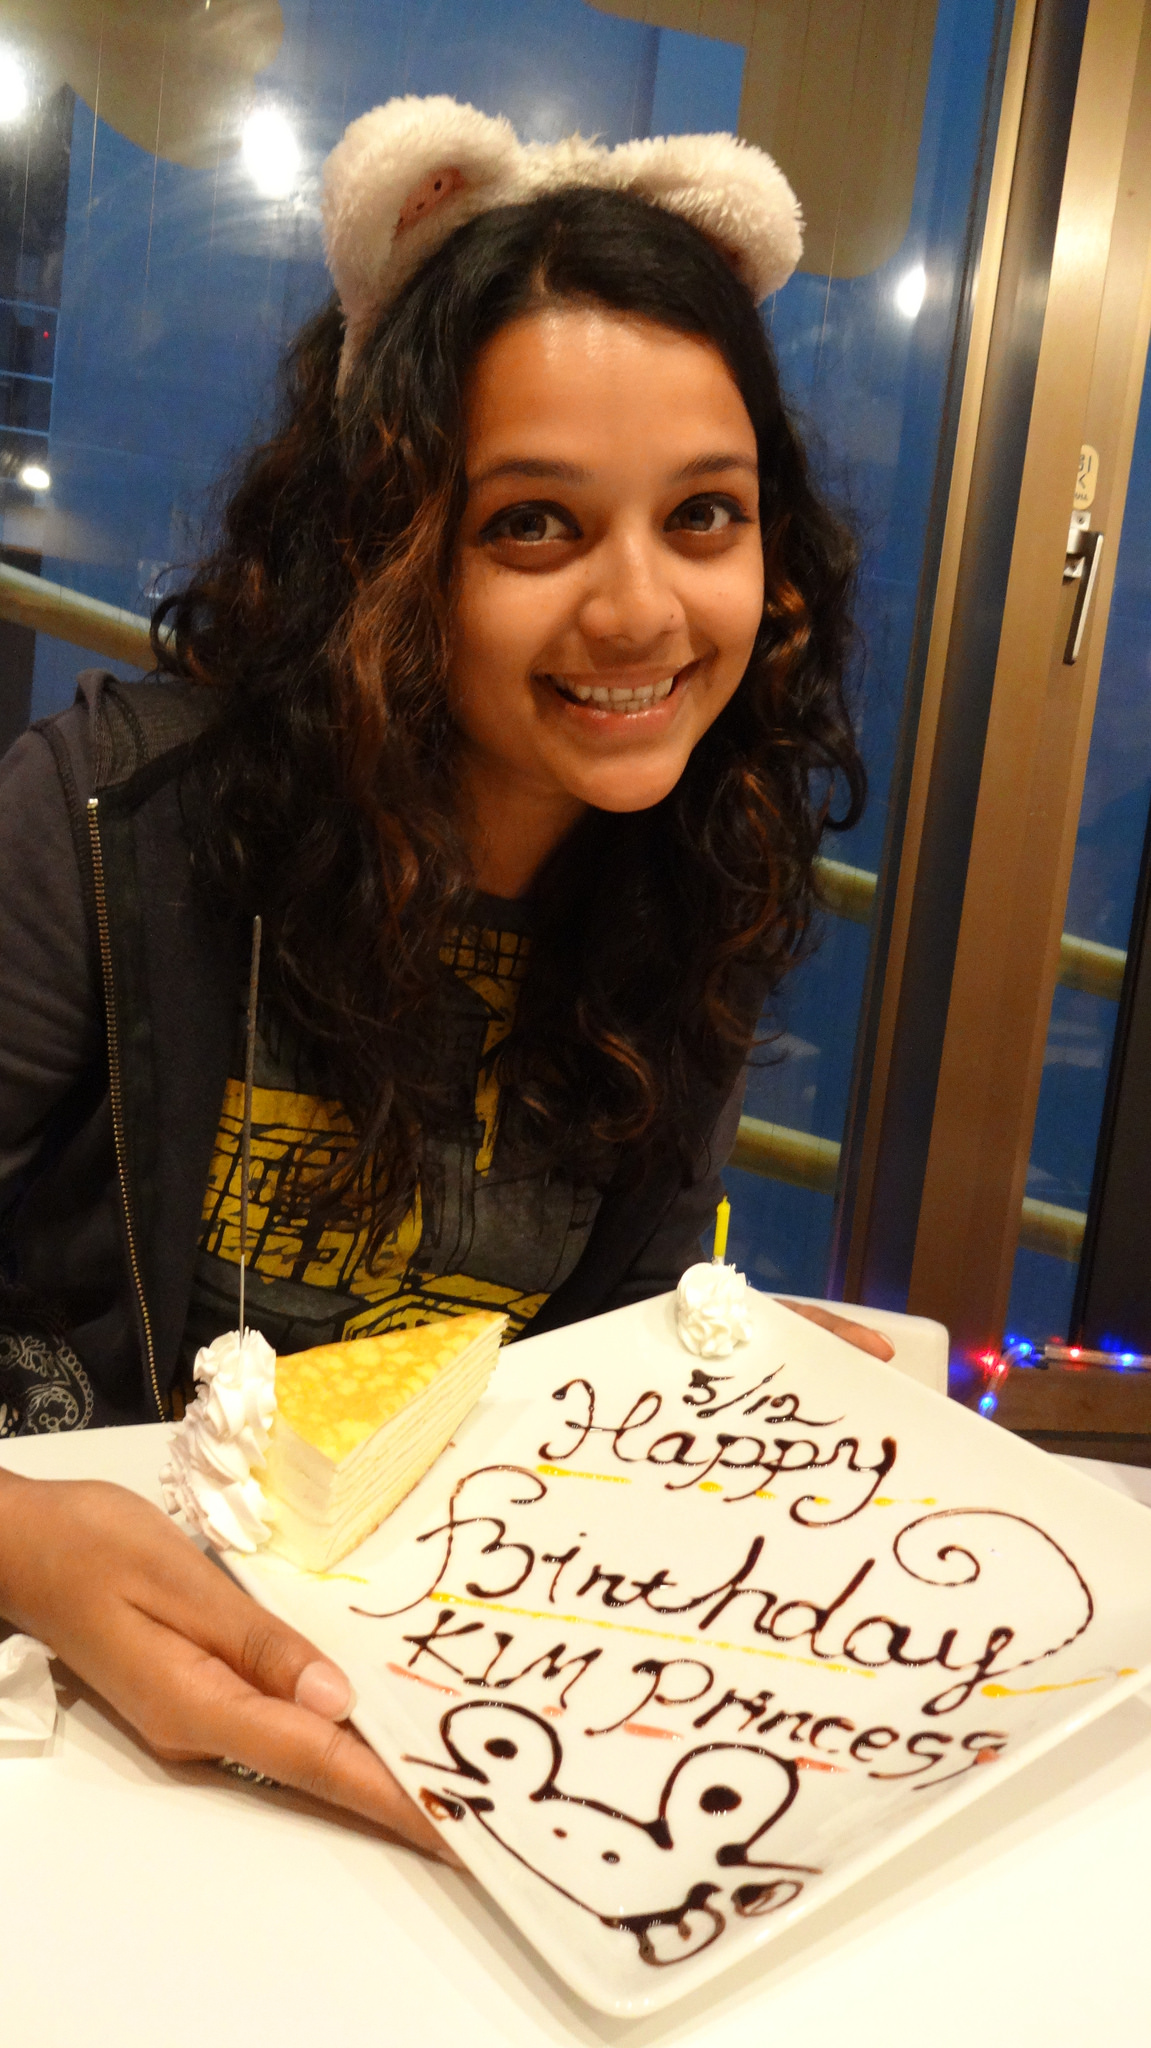 5/12
Happy
Birthday
KIM Princess
引く